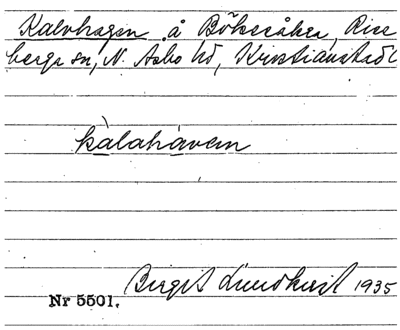 Kalvhagen å Bökesåker, Rise
berga sn, N. Åsbo hd, Kristianstads l
kàlahávan
Birgit Lundkvist 1935
Nr 5501.